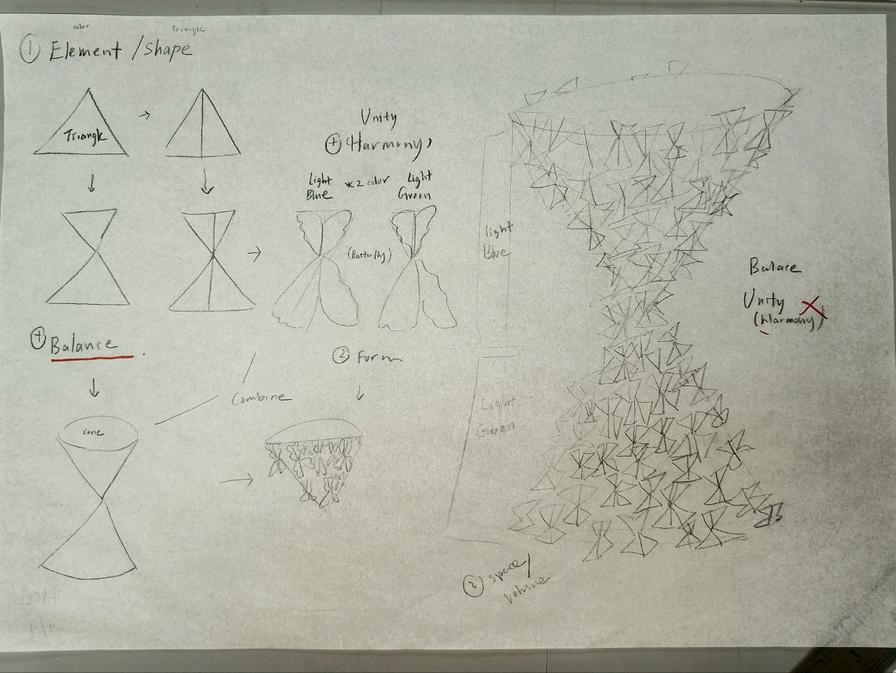 color
Triangle
① Element / shape
Triangle
Unity
⊕ (Harmony)
Light
Blue
※2 color
Light
Green
(Butterfly)
⊕ Balance
② Form
Combine
cone
light
Blue
Light
Green
Balace
Unity
(Harmony)
③ space/
volume